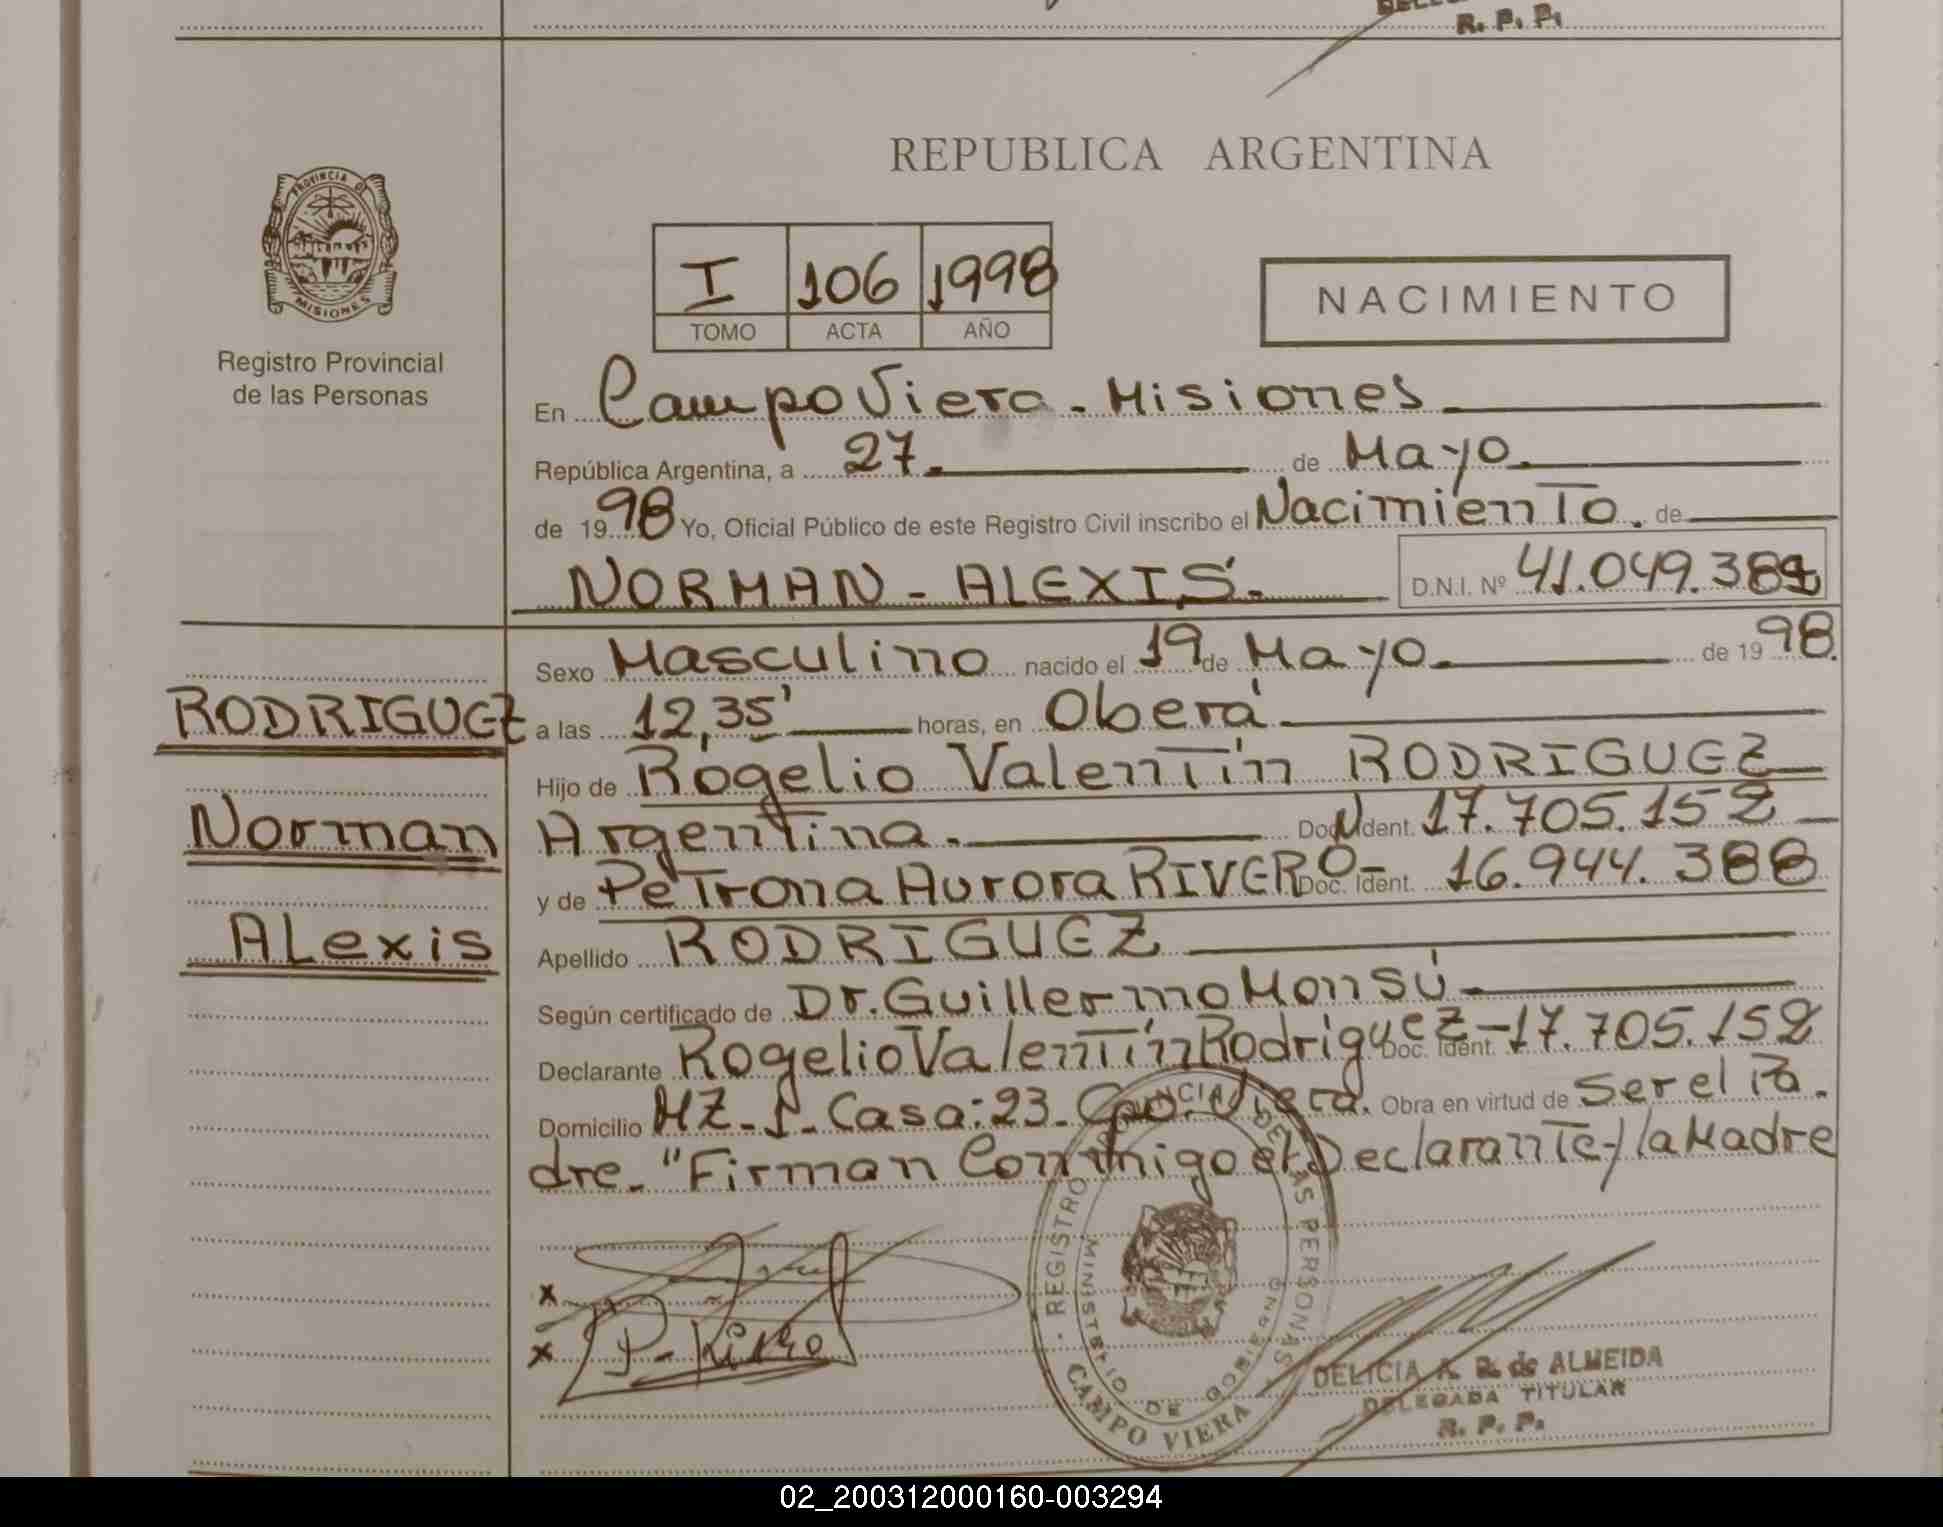 R. P. P.
REPUBLICA ARGENTINA
PROVINCIA DE
MISIONES
Registro Provincial
de las Personas
I 106 1998
TOMO ACTA AÑO
NACIMIENTO
En Campo Viera - Misiones
República Argentina, a 27 de Mayo.
de 1998 Yo, Oficial Público de este Registro Civil inscribo el Nacimiento. de
NORMAN - ALEXIS.- D.N.I. Nº 41.049.38
Sexo Masculino nacido el 19 de Mayo. de 1998.
RODRIGUEZ
a las 12,35' horas, en Oberá.
Hijo de Rogelio Valentín RODRIGUEZ
Norman
Argentina. Doc. Ident. 17.705.152
y de Petrona Aurora RIVERO- Doc. Ident. 16.944.388
ALexis
Apellido RODRIGUEZ
Según certificado de Dr. Guillermo Monsú
Declarante Rogelio Valentín Rodriguez - Doc. Ident. 17.705.152
Domicilio MZ-I- Casa:23- Cpo. Viera. Obra en virtud de Ser el Pa.
dre. "Firman Conmigo el Declarante y la Madre
x
x P. Rivero
REGISTRO PROVINCIAL DE LAS PERSONAS
MINISTERIO DE GOBIERNO
CAMPO VIERA
DELICIA A. R. de ALMEIDA
DELEGADA TITULAR
R. P. P.
02_200312000160-003294